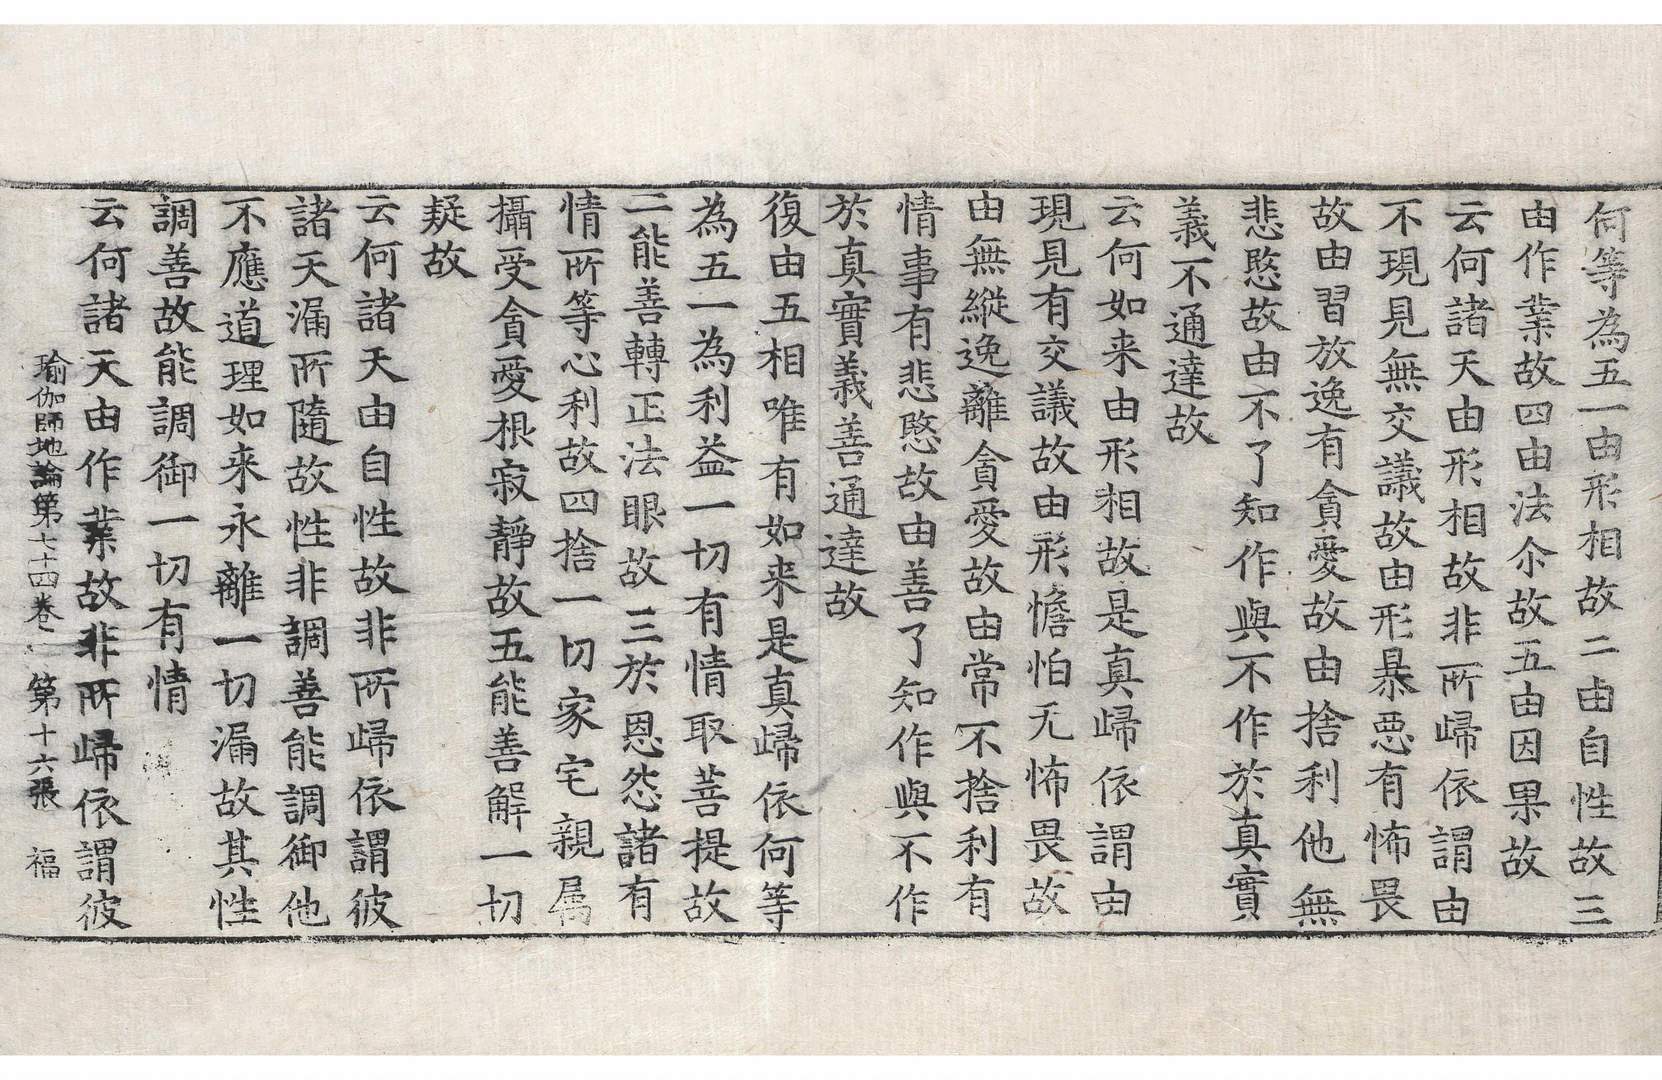 何等為五一由形相故二由自性故三
由作業故四由法尒故五由因果故
云何諸天由形相故非所歸依謂由
不現見無交議故由形暴惡有怖畏
故由習放逸有貪愛故由捨利他無
悲愍故由不了知作與不作於真實
義不通達故
云何如来由形相故是真歸依謂由
現見有交議故由形憺怕无怖畏故
由無縱逸離貪愛故由常不捨利有
情事有悲愍故由善了知作與不作
於真實義善通達故
復由五相唯有如来是真歸依何等
為五一為利益一切有情取菩提故
二能善轉正法眼故三於恩怨諸有
情所等心利故四捨一切家宅親属
攝受貪愛根寂靜故五能善解一切
疑故
云何諸天由自性故非所歸依謂彼
諸天漏所隨故性非調善能調御他
不應道理如来永離一切漏故其性
調善故能調御一切有情
云何諸天由作業故非所歸依謂彼
瑜伽師地論第七十四卷 第十六張 福